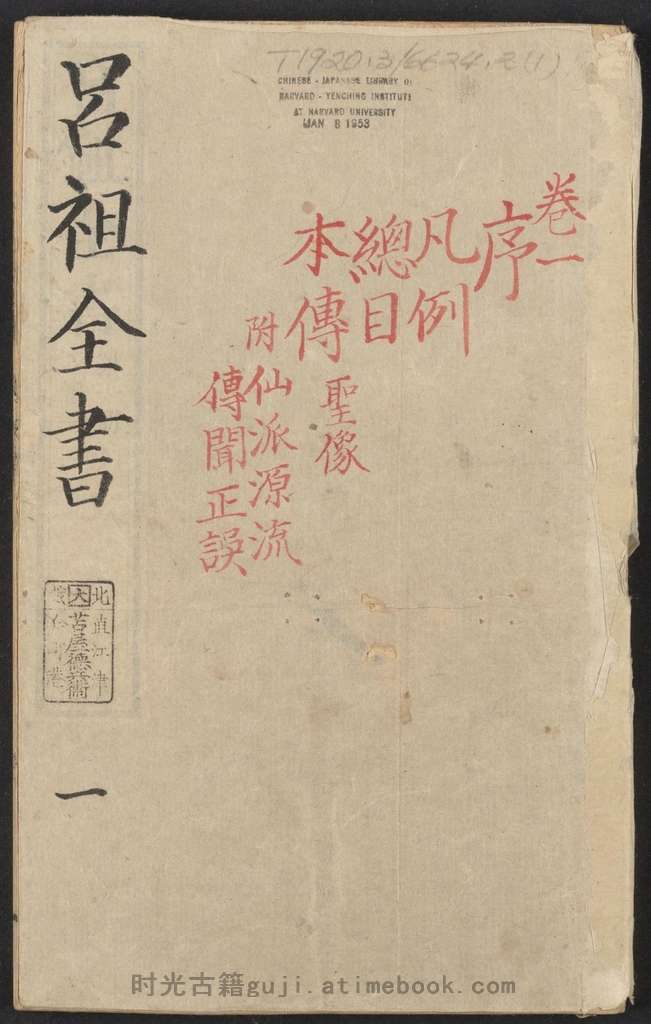 T1920.3/6624.2(1)
CHINESE - JAPANESE LIBRARY OF
HARVARD - YENCHING INSTITUTE
AT HARVARD UNIVERSITY
JAN 8 1953
卷一
序
凡例
總目
本傳
聖像
附
仙派源流
傳聞正誤
呂祖全書
大
一
时光古籍guji.atimebook.com